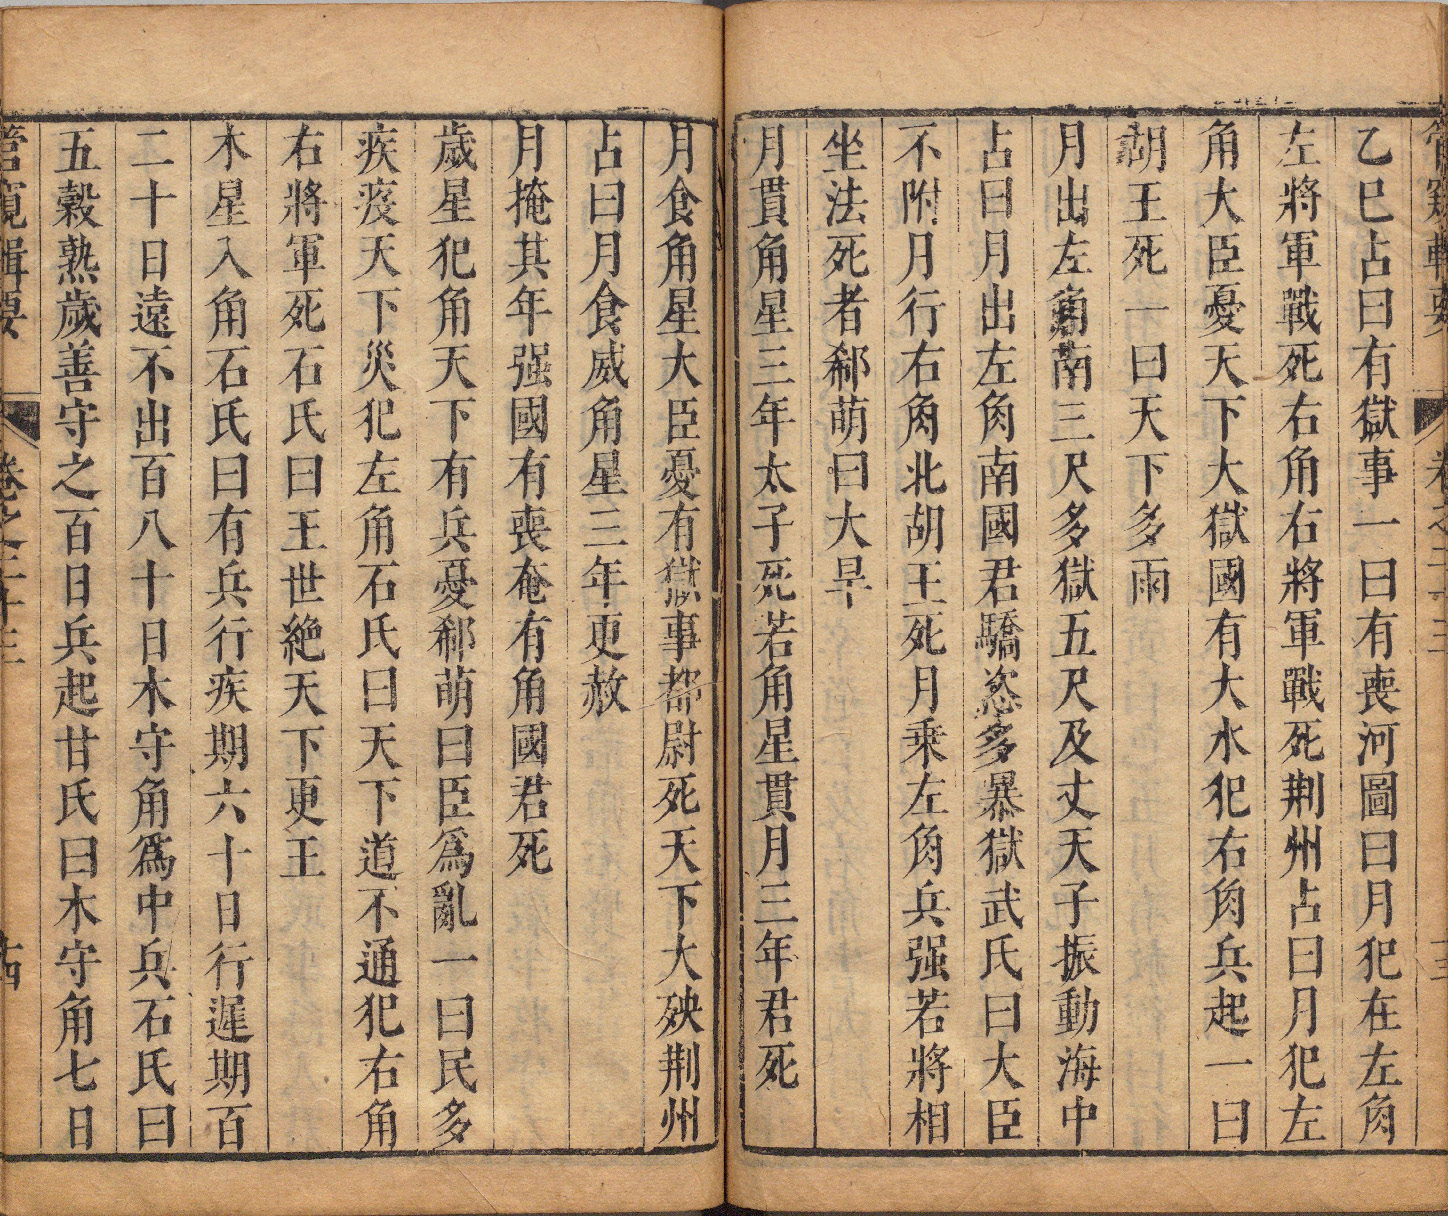 管窺輯要
卷之三十三
十三
乙巳占曰有獄事一曰有喪河圖曰月犯在左角
左將軍戰死右角右將軍戰死荆州占曰月犯左
角大臣憂天下大獄國有大水犯右角兵起一曰
胡王死一曰天下多雨
月出左角南三尺多獄五尺及丈天子振動海中
占曰月出左角南國君驕恣多暴獄武氏曰大臣
不附月行右角北胡王死月乘左角兵强若將相
坐法死者郗萌曰大旱
月貫角星三年太子死若角星貫月三年君死
月食角星大臣憂有獄事都尉死天下大殃荆州
占曰月食威角星三年更赦
月掩其年强國有喪奄有角國君死
歲星犯角天下有兵憂郗萌曰臣爲亂一曰民多
疾疫天下災犯左角石氏曰天下道不通犯右角
右將軍死石氏曰王世絶天下更王
木星入角石氏曰有兵行疾期六十日行遲期百
二十日遠不出百八十日木守角爲中兵石氏曰
五穀熟歲善守之百日兵起甘氏曰木守角七日
管窺輯要
卷之三十三
十四